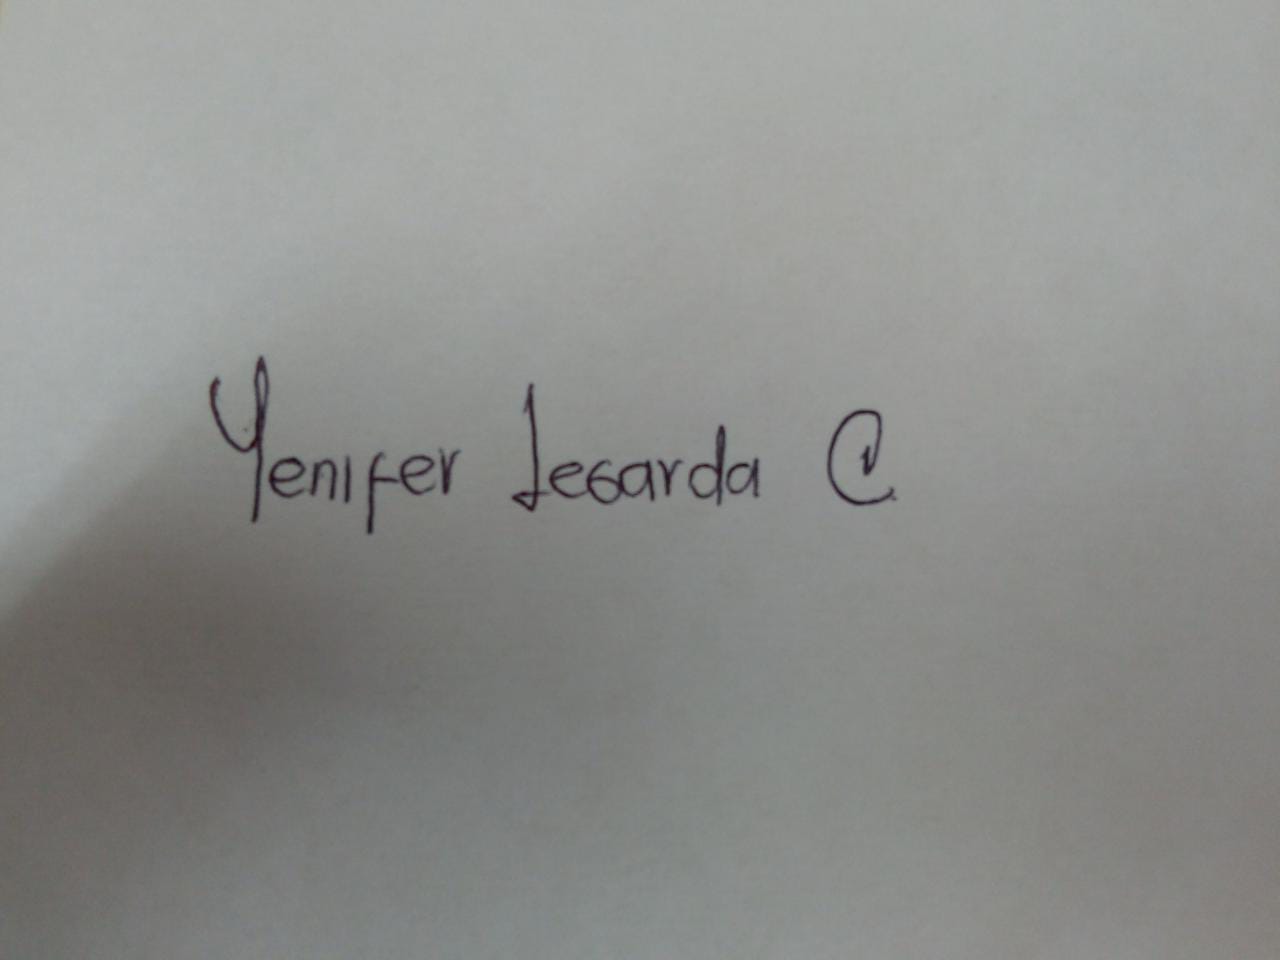 Yenifer Legarda C